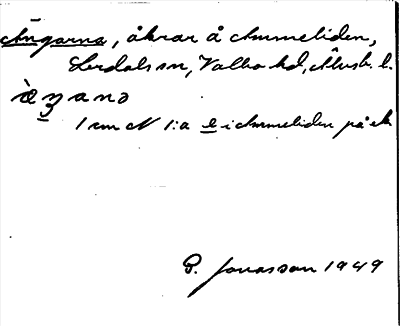 Ängarna, åkrar å Ammeliden,
Lerdals sn, Valbo hd, Älvsb. l.
1 cm N 1:a e i Ammeliden på ek
B. Jonasson 1949